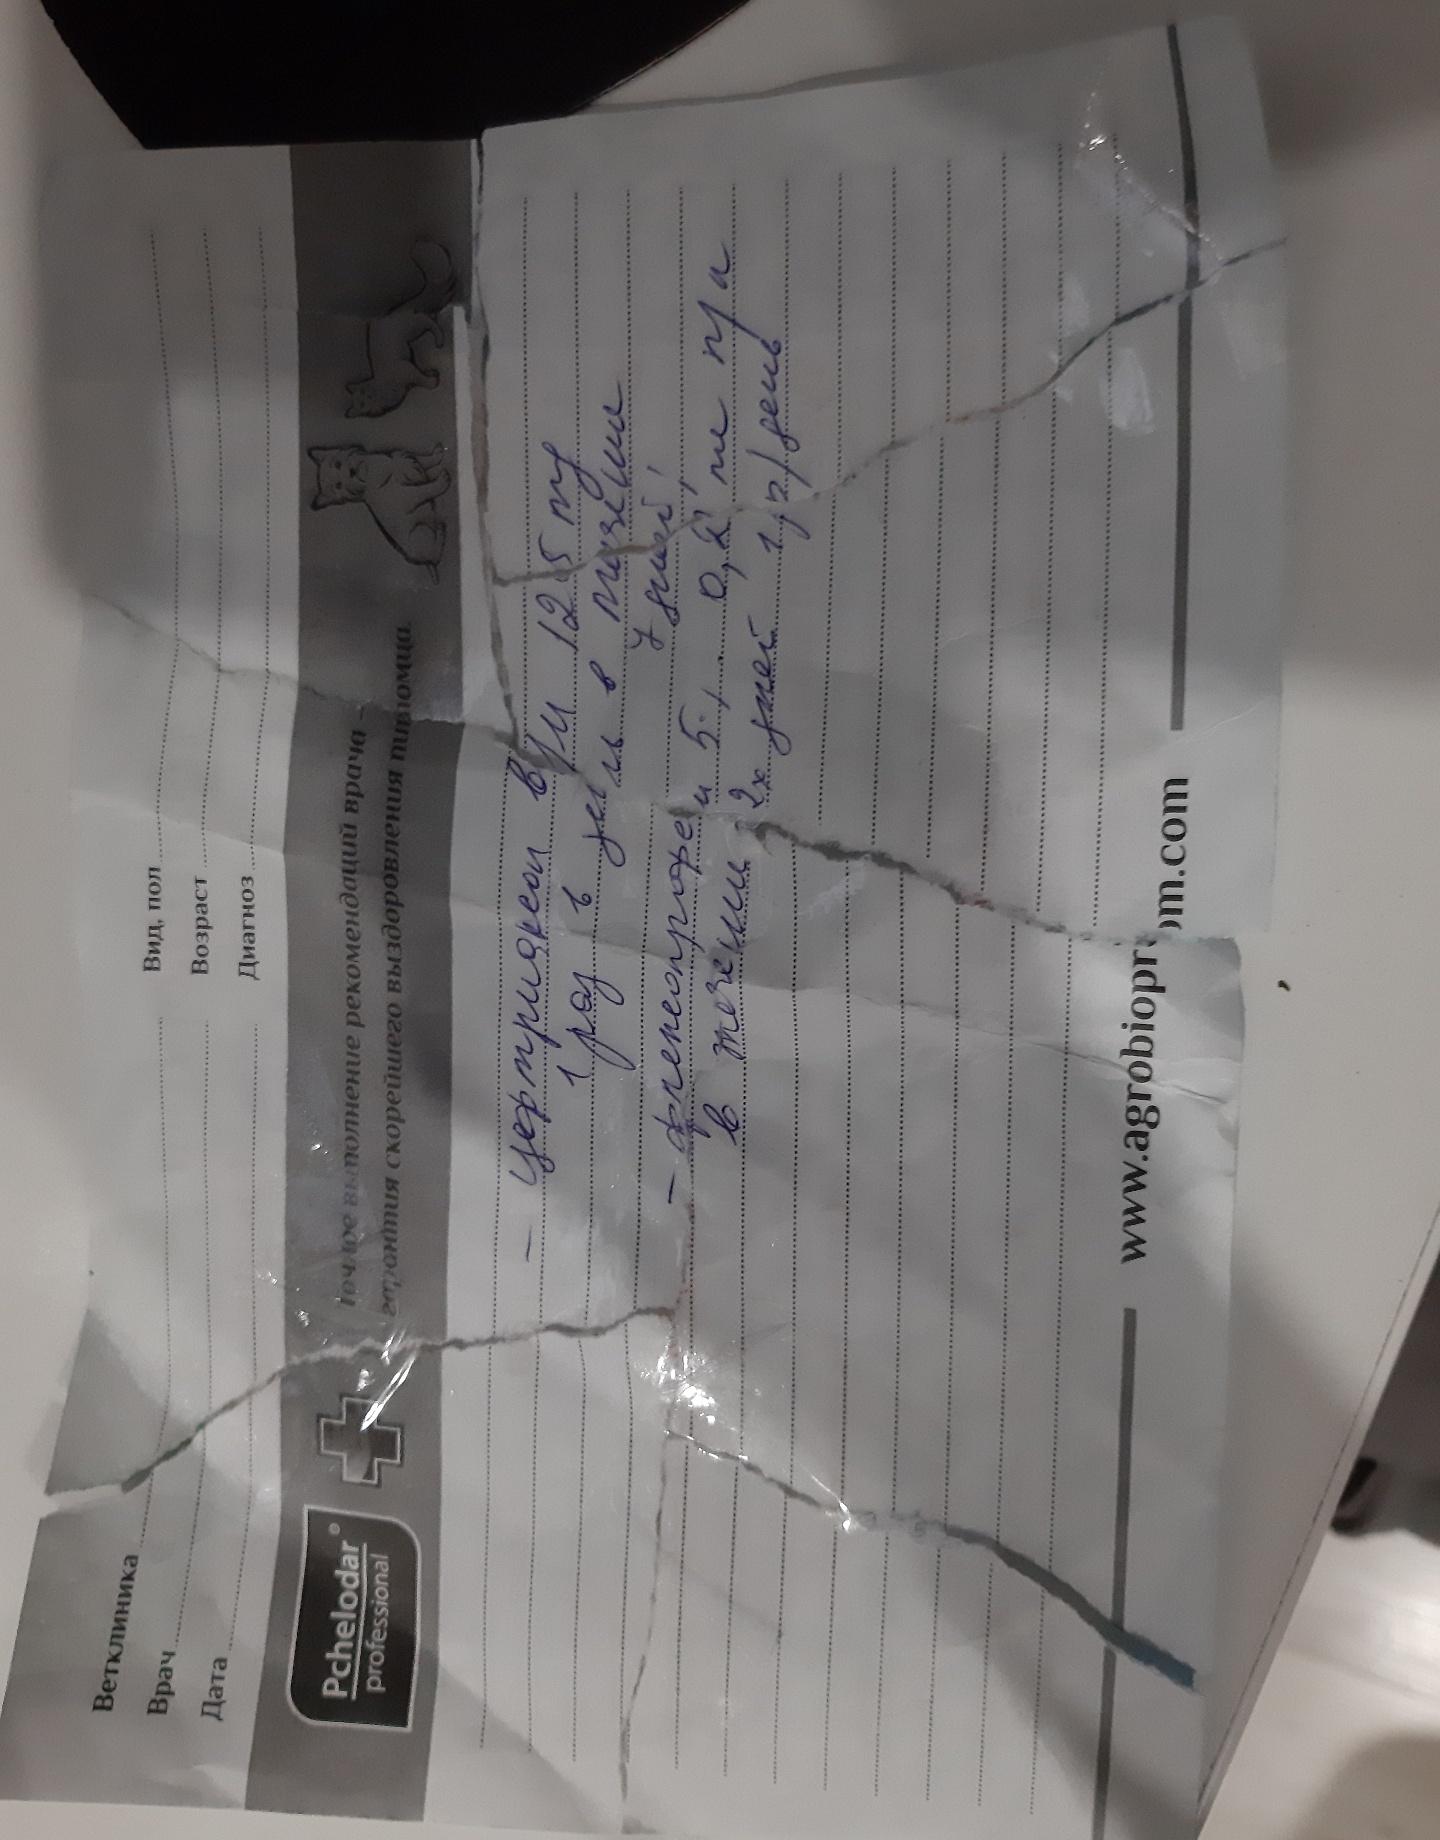 Ветклиника
Вид, пол
Врач
Возраст
Дата
Диагноз
Pchelodar®
professional
Точное выполнение рекомендаций врача -
гарантия скорейшего выздоровления питомца.
- цефтриаксон в/м 125 mg
1 раз в день в течении
7 дней!
- флексопрофен 5% 0,2 мл п/к
в течении 2х дней 1 р/день
www.agrobioprom.com